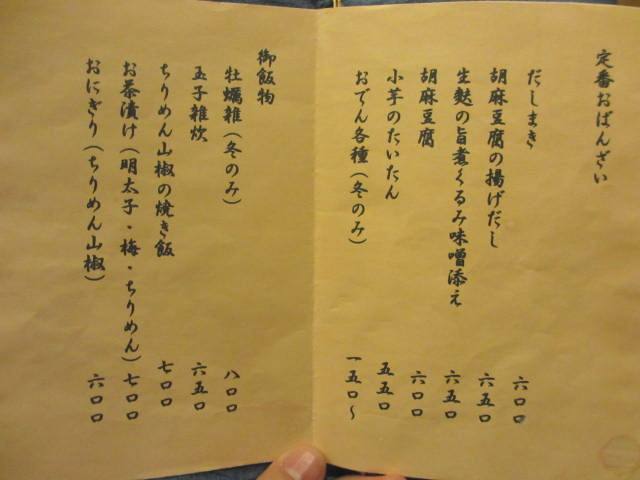 定番おばんざい
だしまき 六〇〇
胡麻豆腐の揚げだし 六五〇
生麩の旨煮くるみ味噌添え 六五〇
胡麻豆腐 六〇〇
小芋のたいたん 五五〇
おでん各種(冬のみ) 一五〇〜
御飯物
牡蠣雑(冬のみ) 八〇〇
玉子雑炊 六五〇
ちりめん山椒の焼き飯 七〇〇
お茶漬け(明太子・梅・ちりめん) 七〇〇
おにぎり(ちりめん山椒) 六〇〇